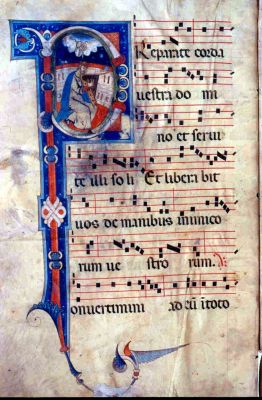 Reparate corda
uestra domi
no et serui
te illi soli Et liberabit
uos de manibus inimico
rum ue stro rum.
onuertimini ad eū ī toto